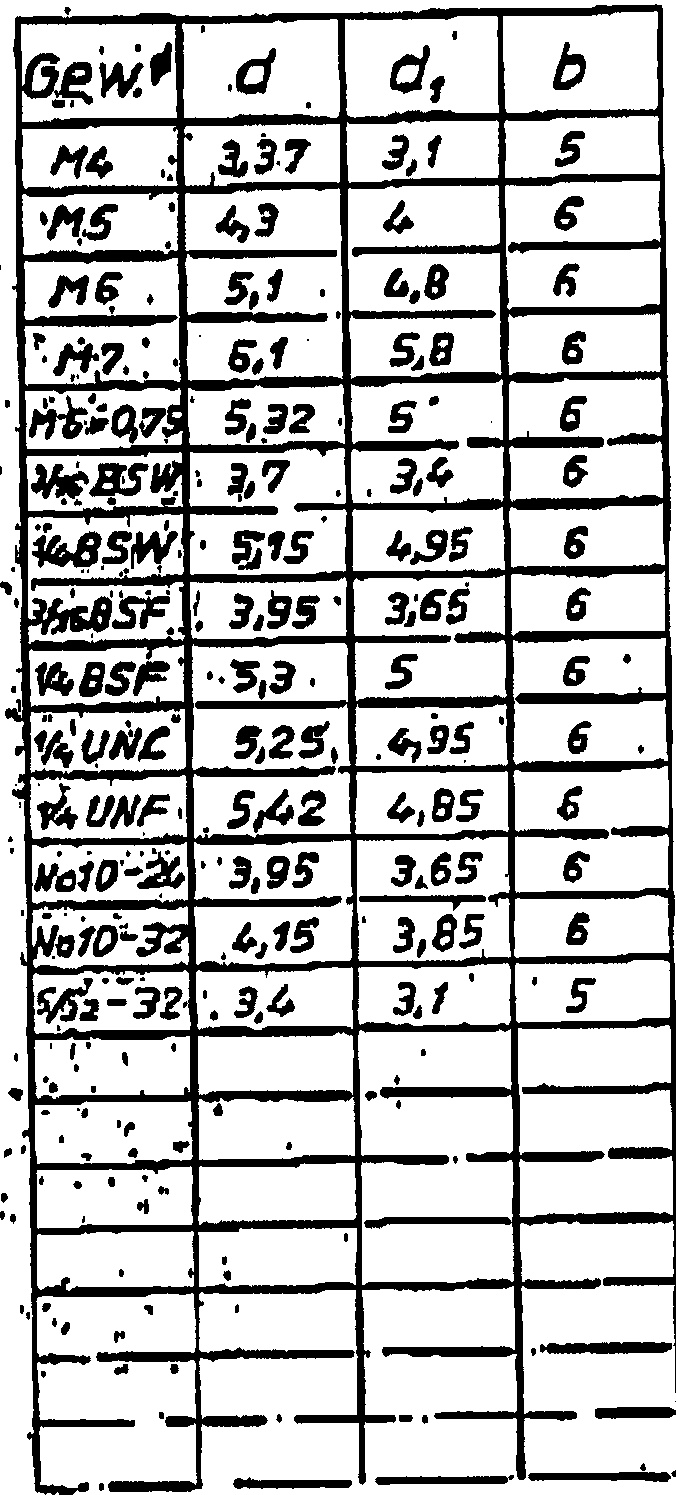 Gew. d d₁ b
M4 3,37 3,1 5
M5 4,3 4 6
M6 5,1 4,8 6
M7 6,1 5,8 6
M6=0,75 5,32 5 6
3/16 BSW 3,7 3,4 6
1/4 BSW 5,15 4,95 6
3/16 BSF 3,95 3,65 6
1/4 BSF 5,3 5 6
1/4 UNC 5,25 4,95 6
1/4 UNF 5,42 4,85 6
No10-24 3,95 3,65 6
No10-32 4,15 3,85 6
5/32-32 3,4 3,1 5